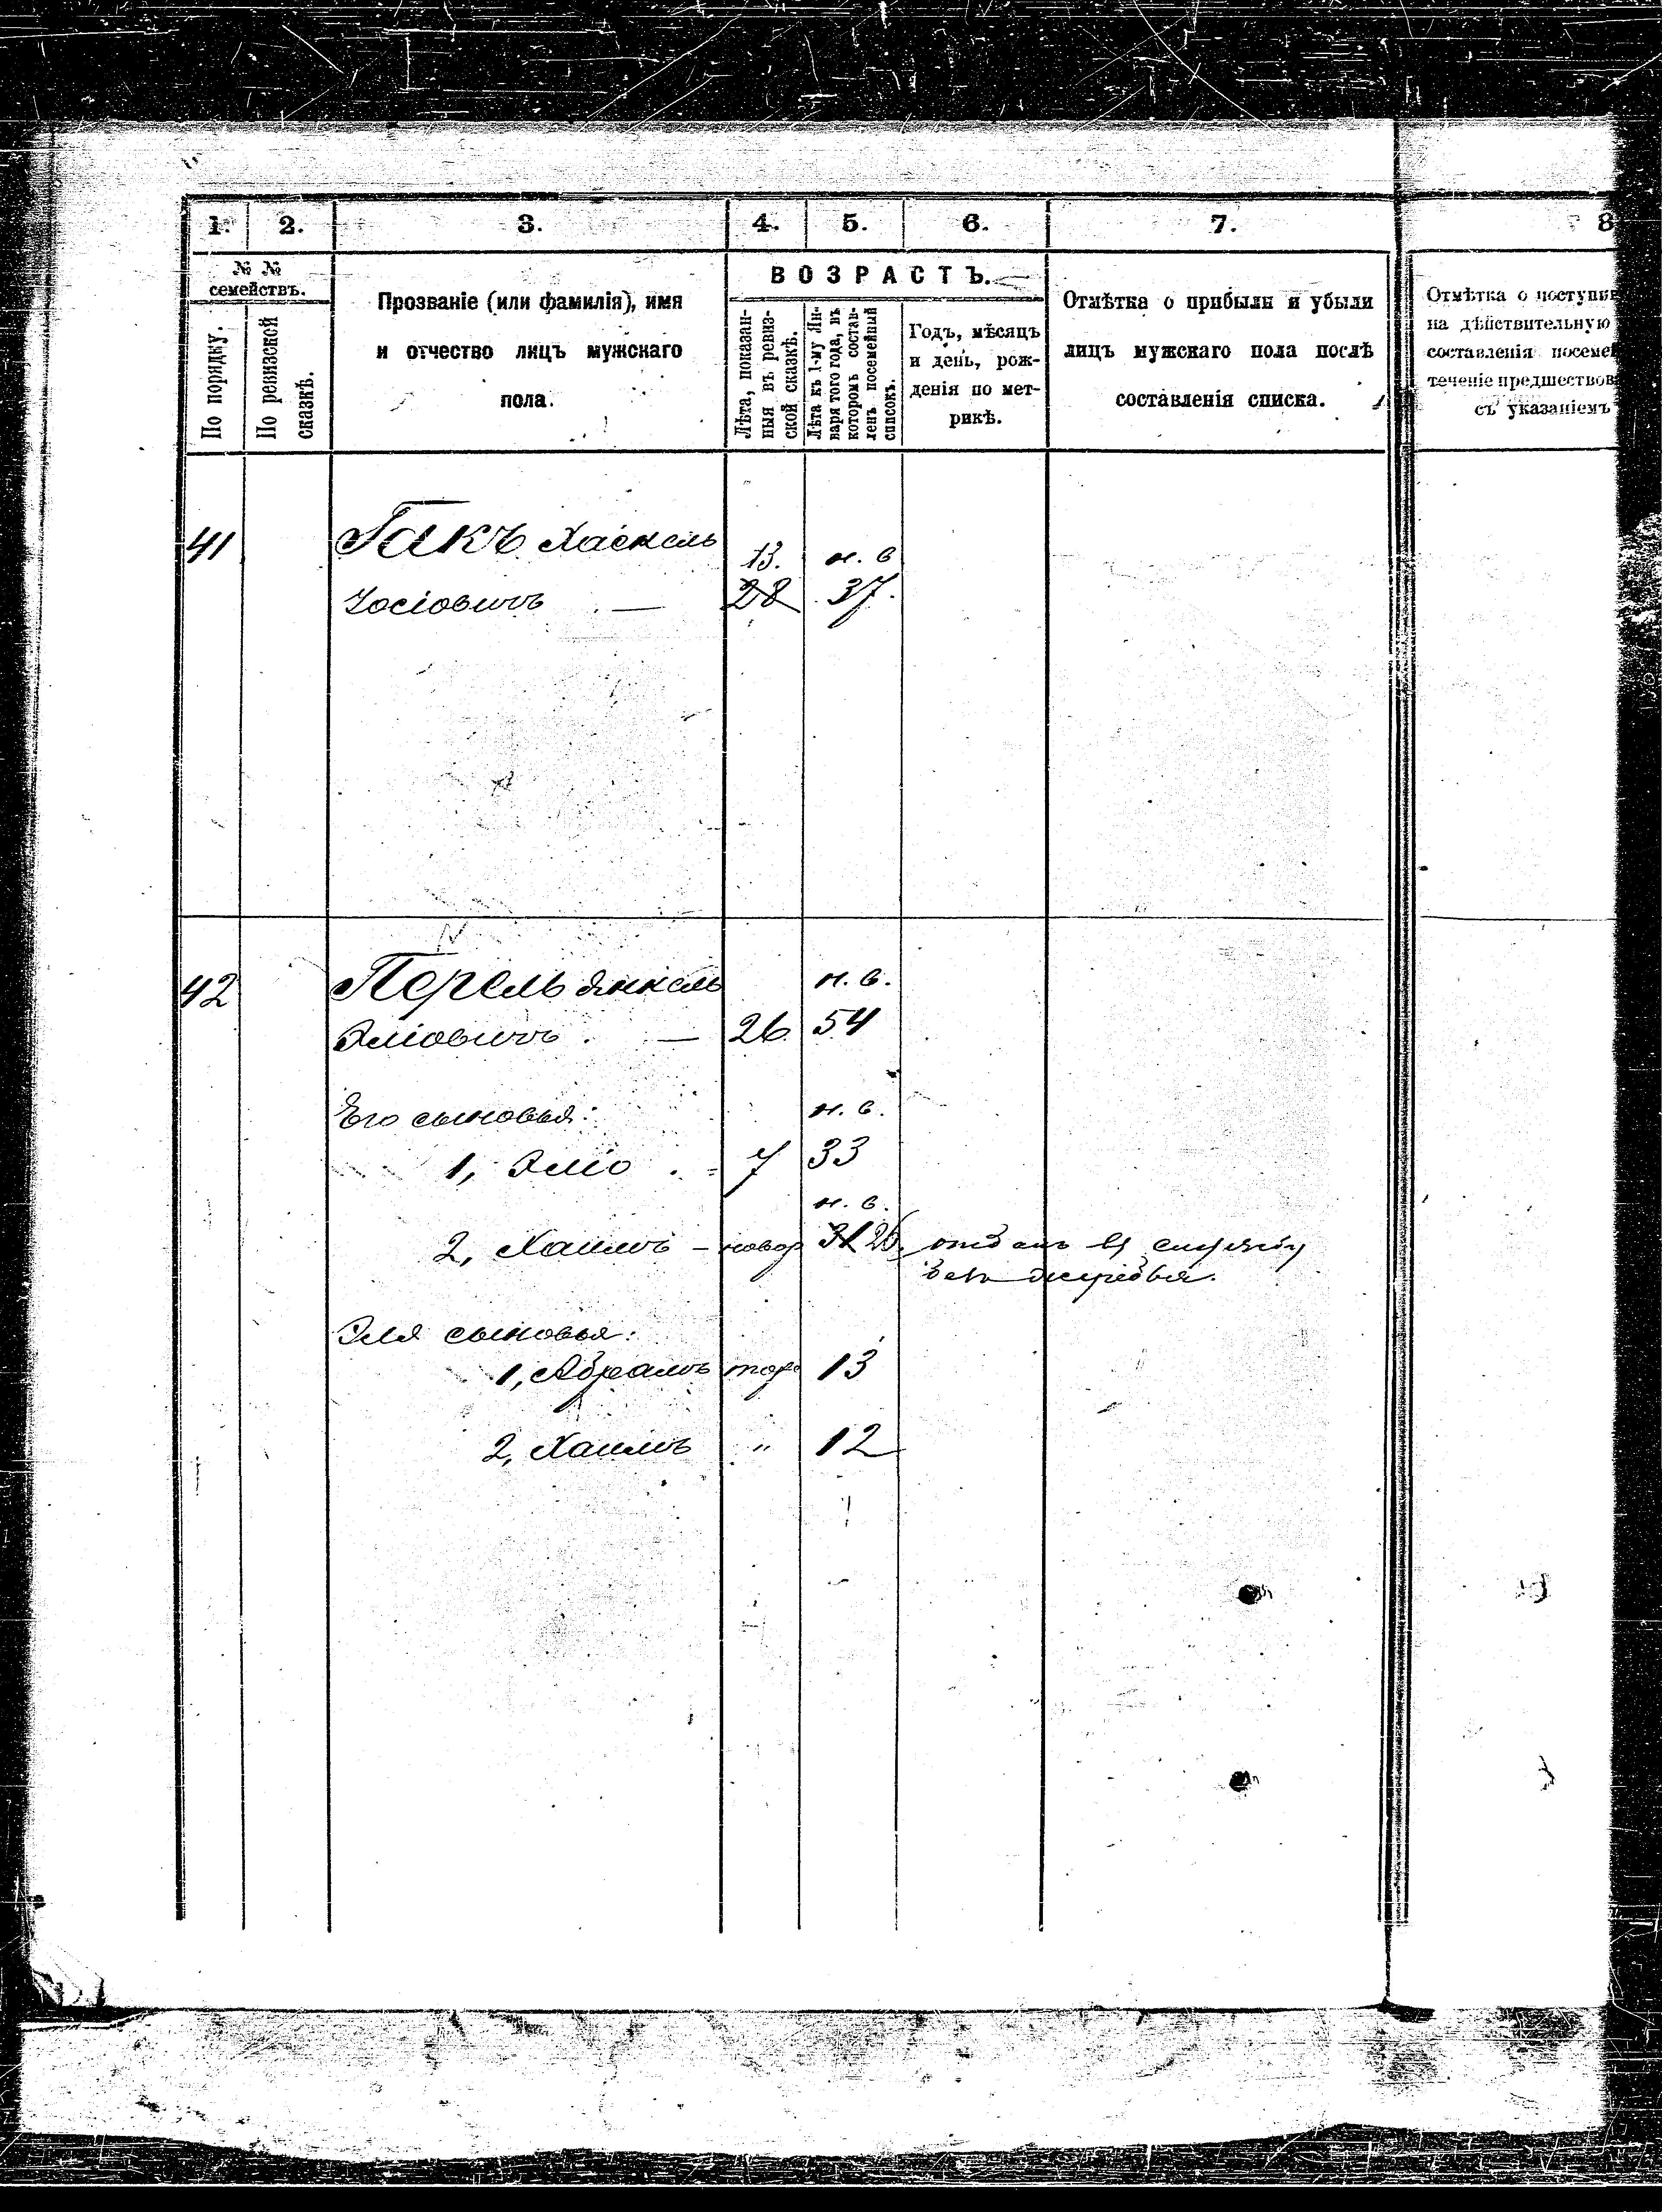 1. 2. 3. 4. 5. 6. 7. 8
№ №
семействъ.
По порядку.
По ревизской
сказкѣ.
Прозваніе (или фамилія), имя
и отчество лицъ мужскаго
пола.
ВОЗРАСТЪ.
Лѣта, показан-
ныя въ ревиз-
ской сказкѣ.
Лѣта къ 1-му Ян-
варя того года, въ
которомъ состав-
ленъ посемейный
списокъ.
Годъ, мѣсяцъ
и день, рож-
денія по мет-
рикѣ.
Отмѣтка о прибыли и убыли
лицъ мужскаго пола послѣ
составленія списка.
Отмѣтка о поступив
на дѣйствительную
составленія посемей
теченіе предшествов
съ указаніемъ
41 Гакъ Хаскель 13. н. в
Іосіовичъ — 28 37.
42 Перель Янкель н. в.
Эліовичъ . — 26 54
Его сыновья: н. в.
1, Эліо . = 7 33
н. в.
2, Хаимъ - новор 31 26
Эля сыновья:
1, Абрамъ тоже 13
2, Хаимъ " 12